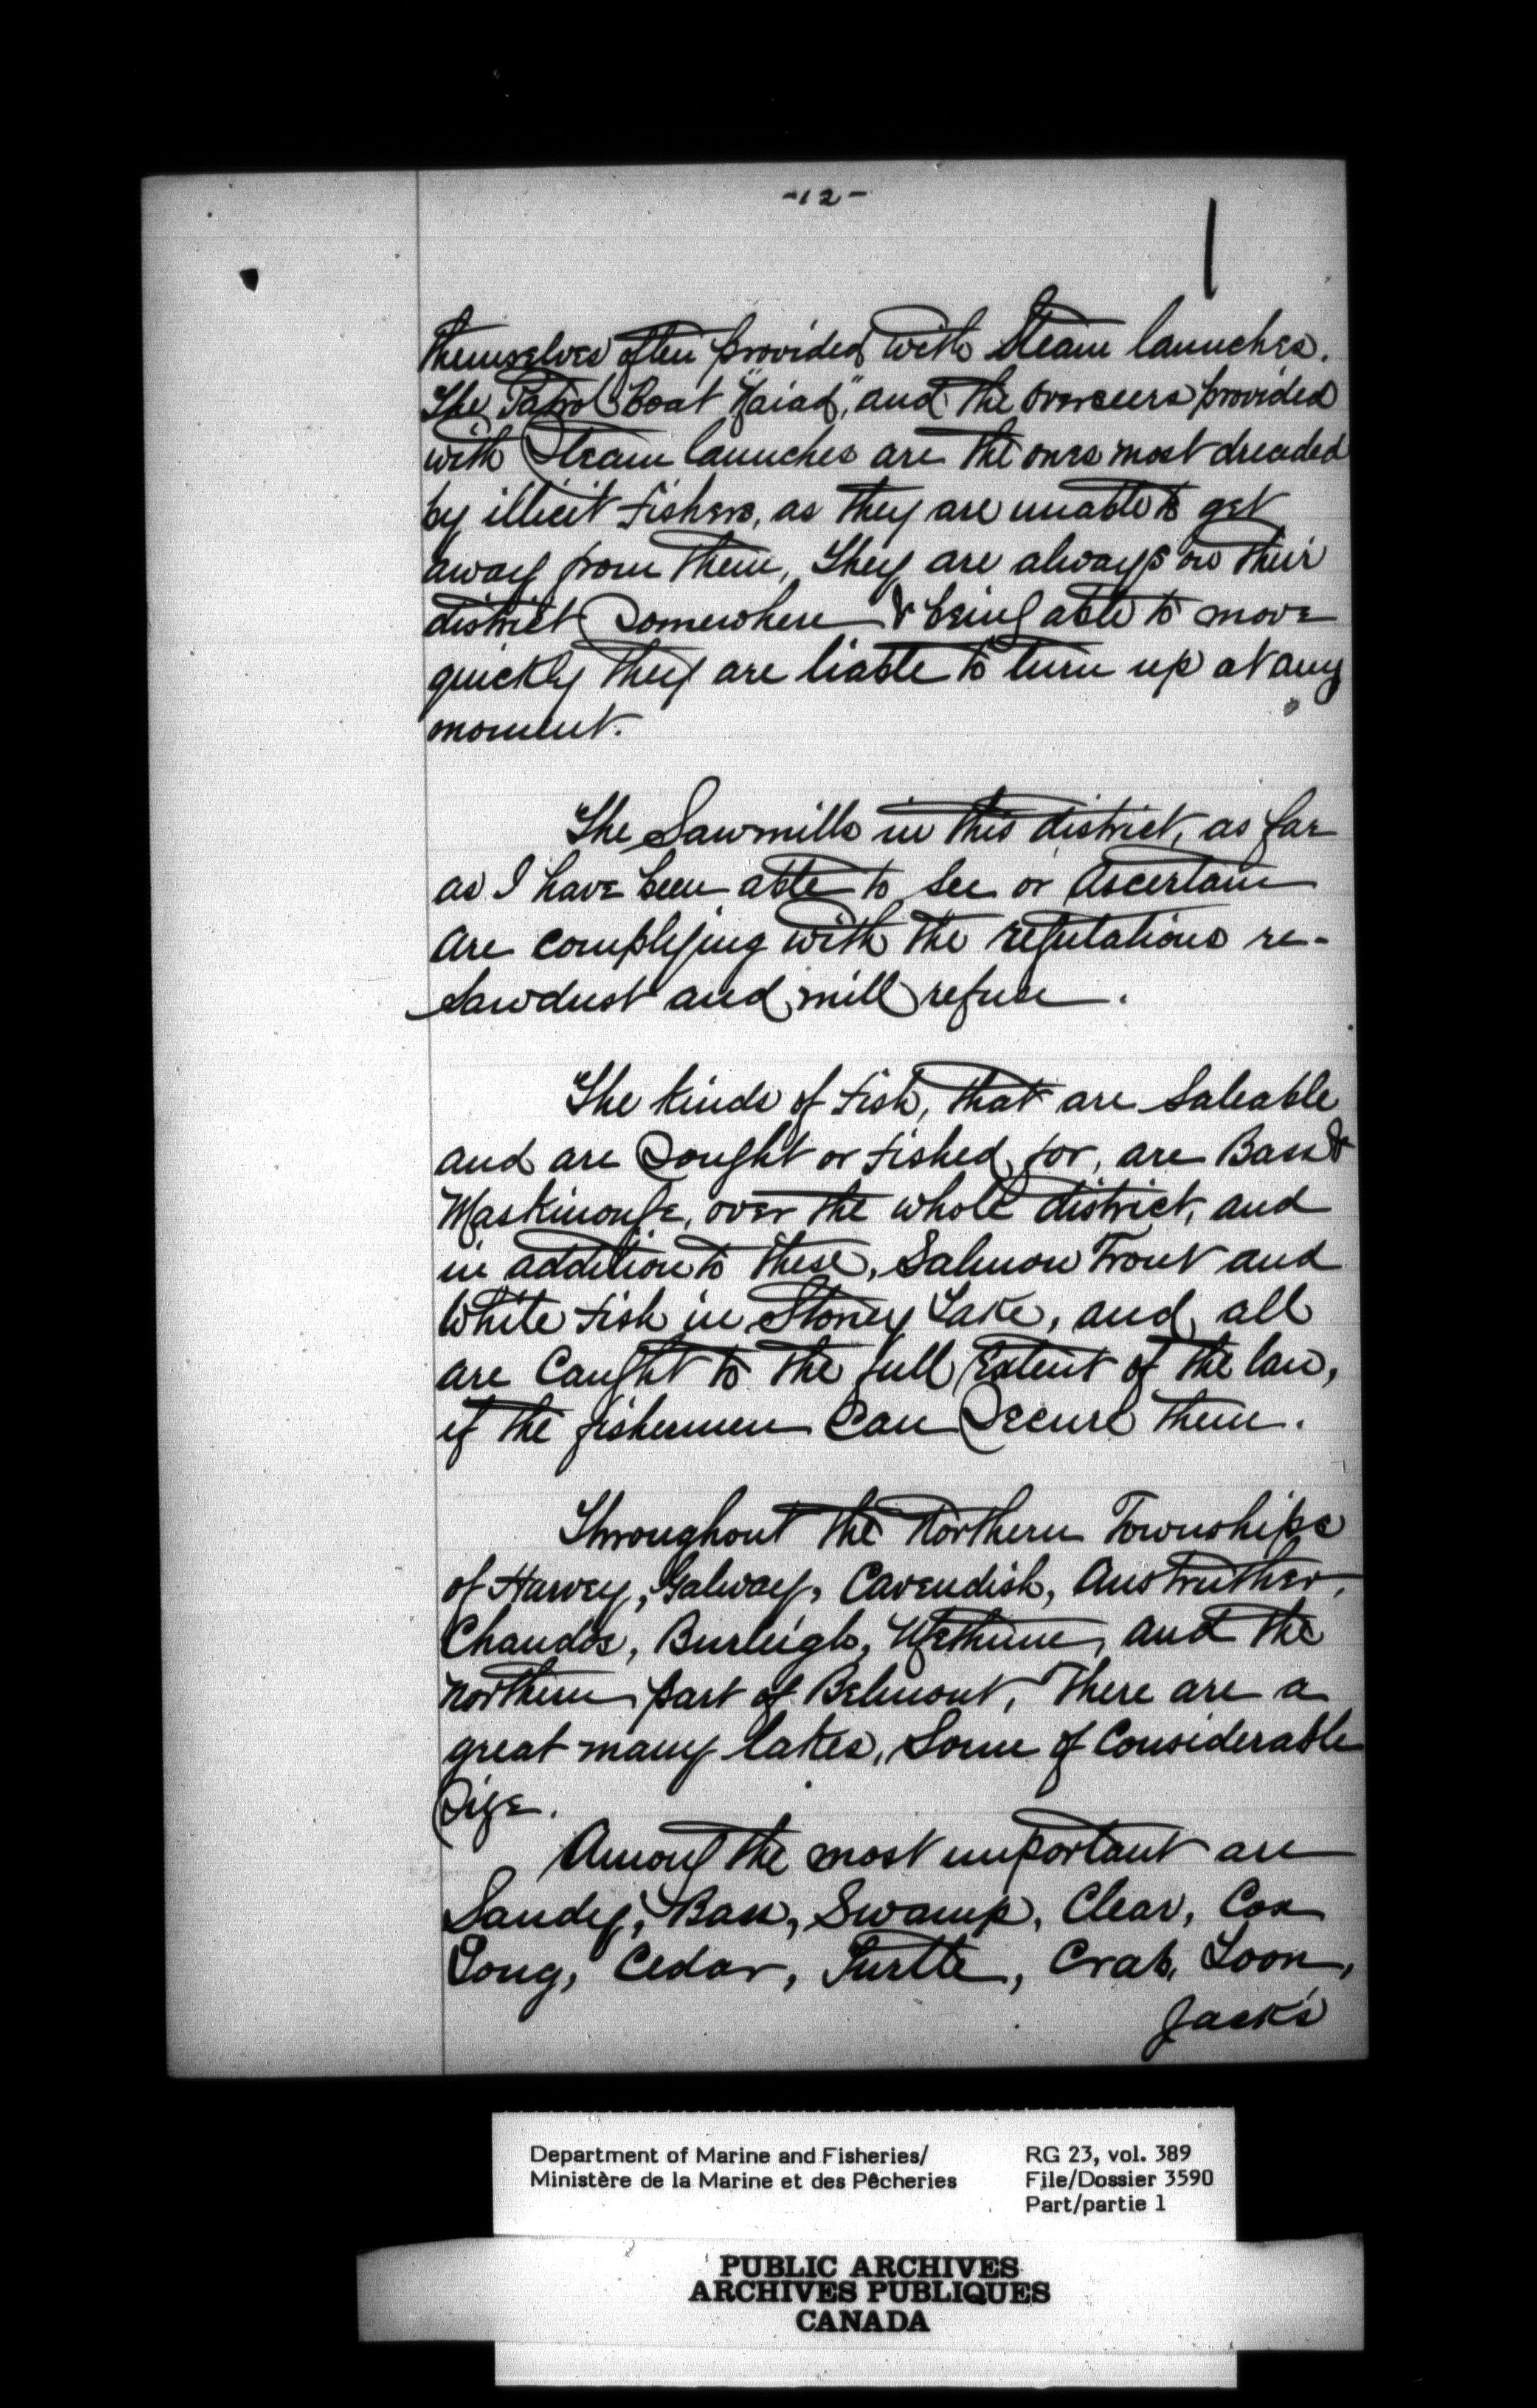 -12-
themselves often provided with Steam launches.
The Patrol Boat "Naiad," and the Overseers provided
with Steam launches are the ones most dreaded
by illicit fishers, as they are unable to get
away from them, They are always on their
district Somewhere & being able to move
quickly they are liable to turn up at any
moment.
The Sawmills in this district, as far
as I have been able to See or Ascertain
Are complying with the regulations re-
Sawdust and mill refuse.
The kinds of fish, that are Saleable
and are Sought or fished for, are Bass &
Maskinonge, over the whole district, and
in addition to these, Salmon Trout and
White fish in Stoney Lake, and all
are Caught to the full Extent of the law,
if the fishermen Can Secure them.
Throughout the Northern Townships
of Harvey, Galway, Cavendish, Anstruther,
Chandos, Burleigh, Methune, and the
northern part of Belmont, There are a
great many lakes, Some of Considerable
Size.
Among the most important are
Sandy, Bass, Swamp, Clear, Cox
Long, Cedar, Turtle, Crab, Loon,
Jack's
Department of Marine and Fisheries/
Ministère de la Marine et des Pêcheries
RG 23, vol. 389
File/Dossier 3590
Part/partie 1
PUBLIC ARCHIVES
ARCHIVES PUBLIQUES
CANADA